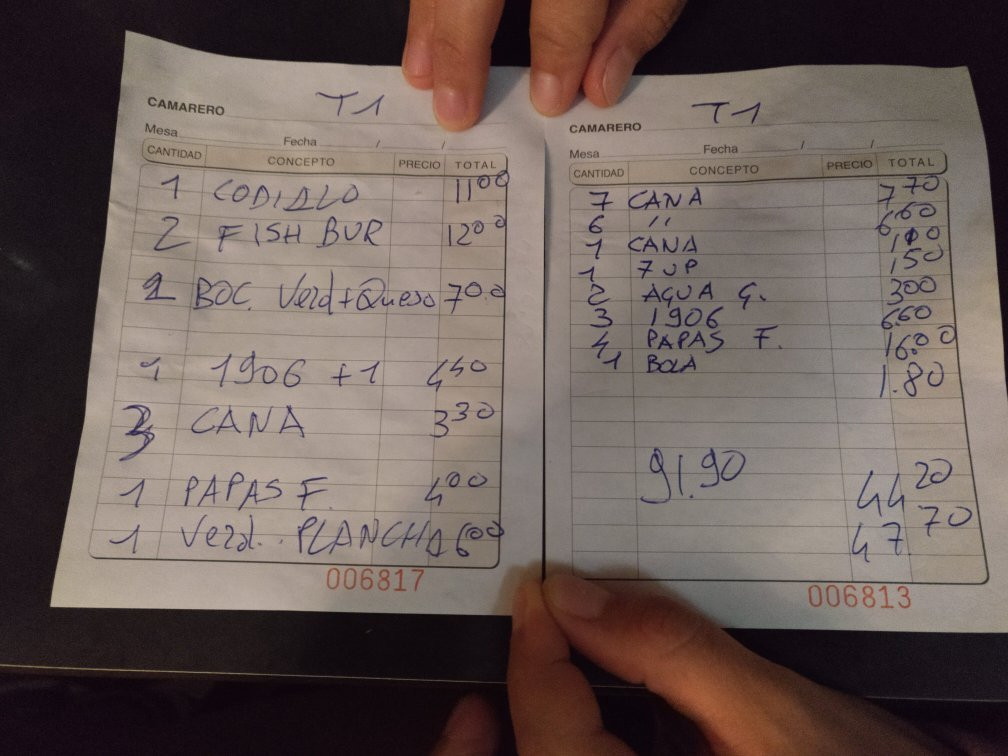 CAMARERO T1
Mesa Fecha / /
CANTIDAD CONCEPTO PRECIO TOTAL
1 CODILLO 1100
2 FISH BUR 1200
1 BOC. Verd+Queso 700
1 1906 +1 440
3 CANA 330
1 PAPAS F. 400
1 Verd. PLANCHA 600
006817
CAMARERO T1
Mesa Fecha / /
CANTIDAD CONCEPTO PRECIO TOTAL
7 CANA 770
6 " 660
1 CANA 110
1 7 UP 150
2 AGUA G. 300
3 1906 660
4 PAPAS F. 16.00
1 BOLA 1.80
91.90 4420
4770
006813